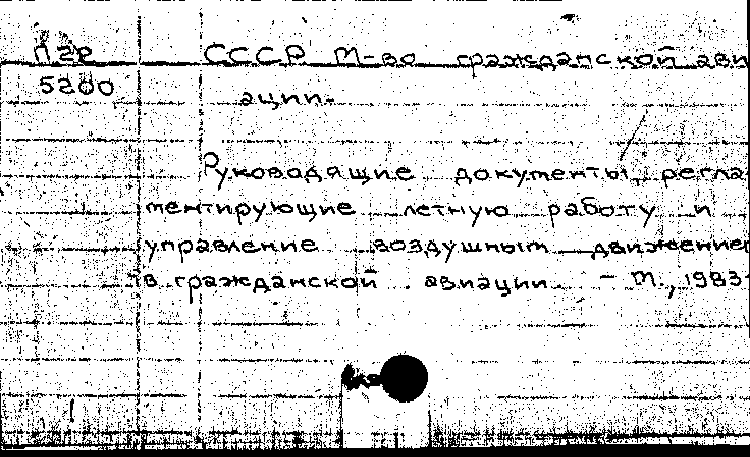 Пгр СССР М-во гражданской ави
5200 ации.
Руководящие документы, регла
ментирующие летную работу и
управление воздушным движением
в гражданской авиации. - М., 1983